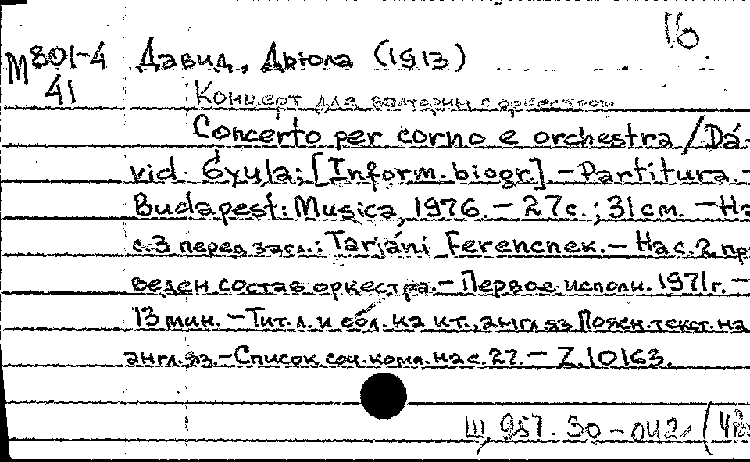 16
M 801-4 Давид, Дьюла (1913)
41
Концерт для валторны с оркестром
Concerto per corno e orchestra / Dá-
vid Gyula; [Inform. biogr.] – Partitura. –
Budapest: Musica, 1976. – 27 с.; 31 см. – На
с. 3 перед загл.: Tarjáni Ferencnek. – На с. 2 пр
веден состав оркестра. – Первое исполн. 1971 г. –
13 мин. – Тит. л. и обл. на ит., англ. яз. Поясн. текст. на
англ. яз. – Список соч. комп. на с. 27. – Z. 10163.